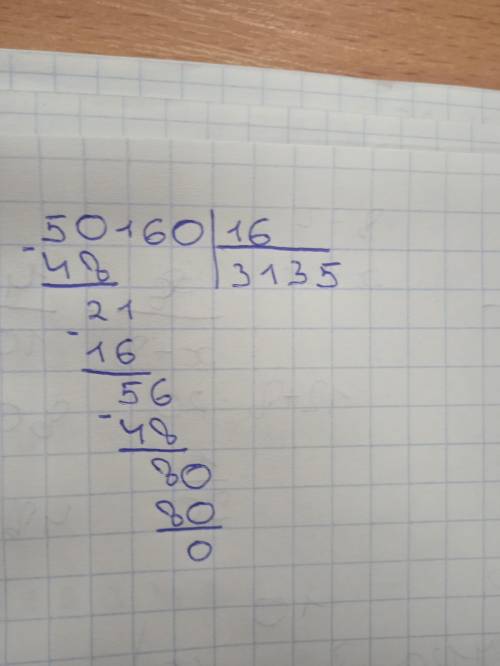 50160 16
- 48 3135
21
- 16
56
- 48
80
80
0